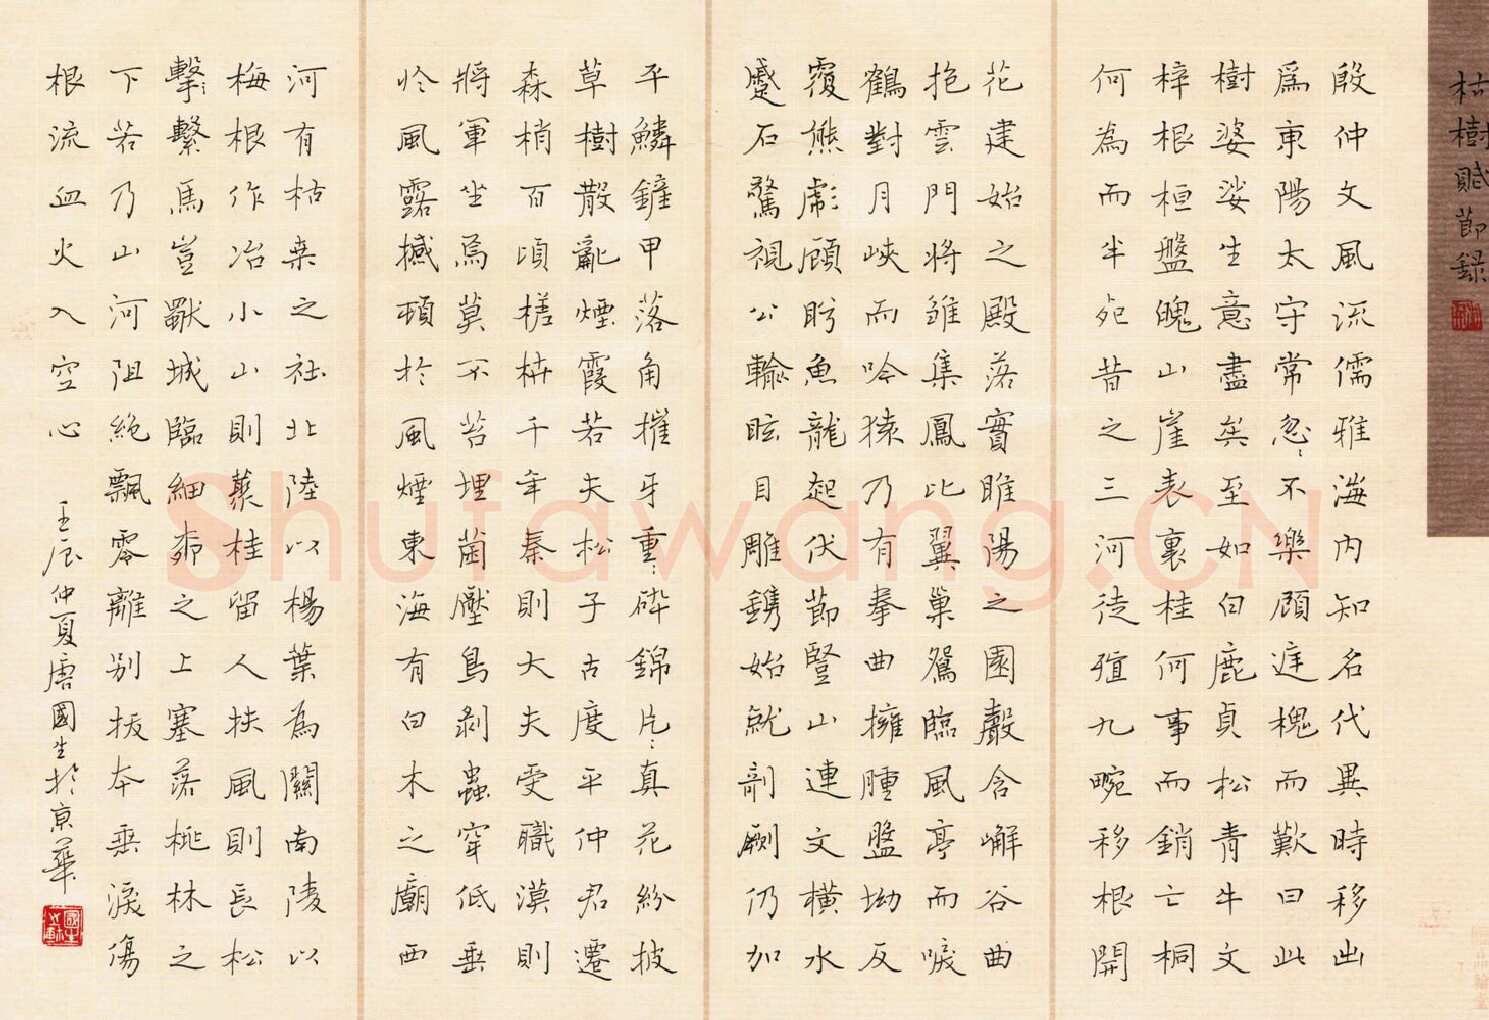 枯樹賦節録
殷仲文風流儒雅海内知名代異時移出
爲東陽太守常忽〻不樂顧庭槐而歎曰此
樹婆娑生意盡矣至如白鹿貞松青牛文
梓根桓盤魄山崖表裏桂何事而銷亡桐
何為而半死昔之三河徒殖九畹移根開
花建始之殿落實睢陽之園聲含嶰谷曲
抱雲門將雛集鳳比翼巢鴛臨風亭而唳
鶴對月峽而吟猿乃有拳曲擁腫盤坳反
覆熊彪顧盻魚龍起伏節豎山連文橫水
蹙石驚視公輸眩目雕鐫始就剞劂仍加
平鱗鏟甲落角摧牙重〻碎錦片〻真花紛披
草樹散亂煙霞若夫松子古度平仲君遷
森梢百頃槎枿千年秦則大夫受職漢則
將軍坐焉莫不苔埋菌壓鳥剥蟲穿低垂
於風露撼頓於風煙東海有白木之廟西
河有枯桒之社北陸以楊葉為關南陵以
梅根作冶小山則藂桂留人扶風則長松
擊〻繫馬豈獨城臨細栁之上塞落桃林之
下若乃山河阻絶飄零離别拔本垂淚傷
根流血火入空心
壬辰仲夏唐國生於京華
shufawang.CN